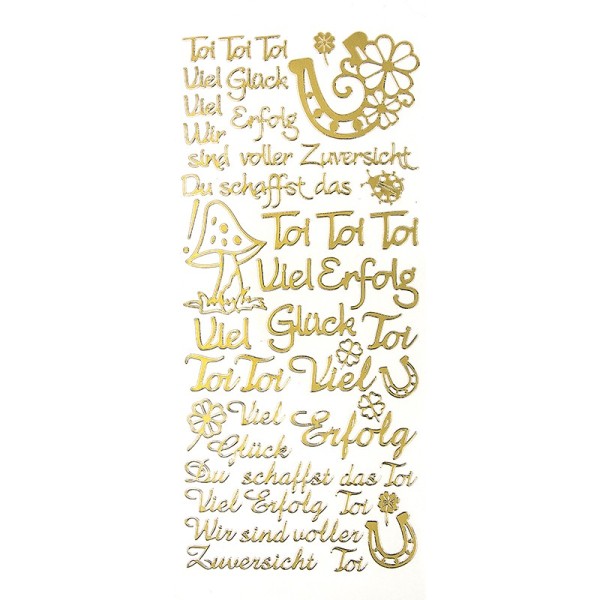 Toi Toi Toi
Viel Glück
Viel Erfolg
Wir
sind voller Zuversicht
Du schaffst das
!
Toi Toi Toi
Viel Erfolg
Viel Glück Toi
Toi Toi Viel
Viel Erfolg
Glück
Du schaffst das Toi
Viel Erfolg Toi
Wir sind voller
Zuversicht Toi